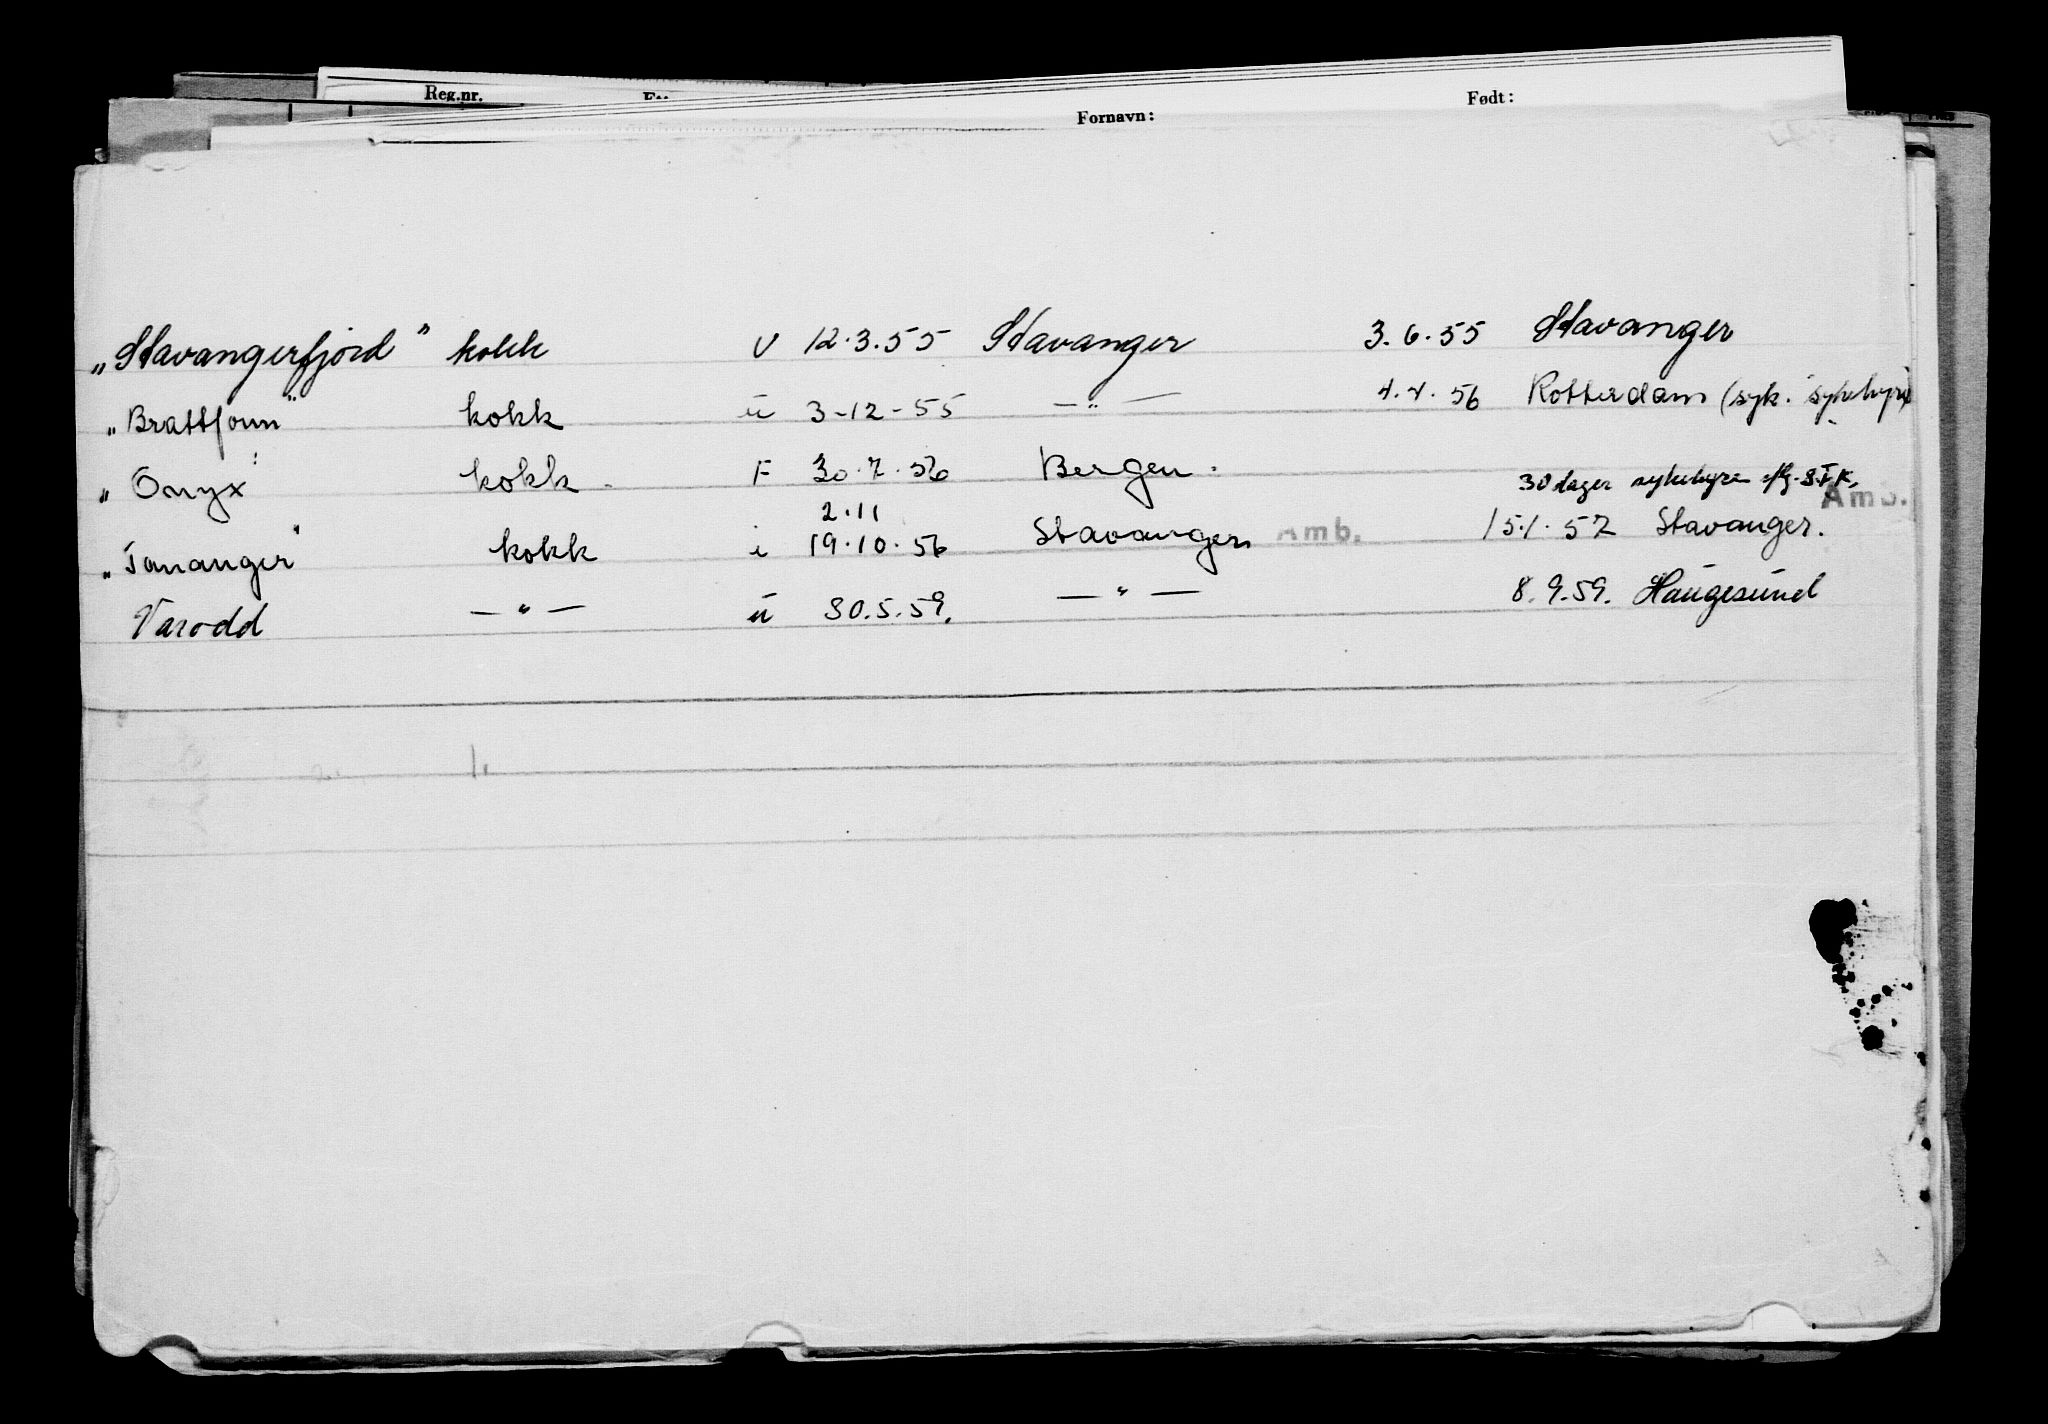 Reg.nr.
Fornavn:
Født:
"Stavangerfjord" kokk U 12.3.55 Stavanger 3.6.55 Stavanger
"Brattfonn" kokk ü 3-12-55 —"— 4.4.56 Rotterdam (syk. sykehyre
"Onyx" kokk F 30.7.56 Bergen. 30 dager sykehyre
2.11 Amb.
"Tananger" kokk i 19.10.56 Stavanger Amb. 15.1.57 Stavanger.
Varodd —"— ü 30.5.59. —"— 8.9.59. Haugesund